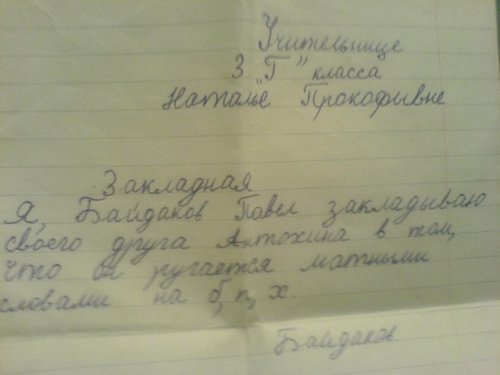 Учительнице
3 „Г” класса
Наталье Прокофивне
Закладная
Я, Байдаков Павел закладываю
своего друга Антохина в том,
что он ругается матными
словами на б, п, х.
Байдаков